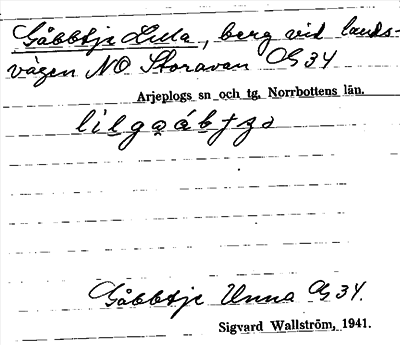 Gåbbtje Lilla, berg vid lands-
vägen NO Storavan Og 34
Arjeplogs sn och tg, Norrbottens län.
Gåbbtje Unna Og 34.
Sigvard Wallström, 1941.